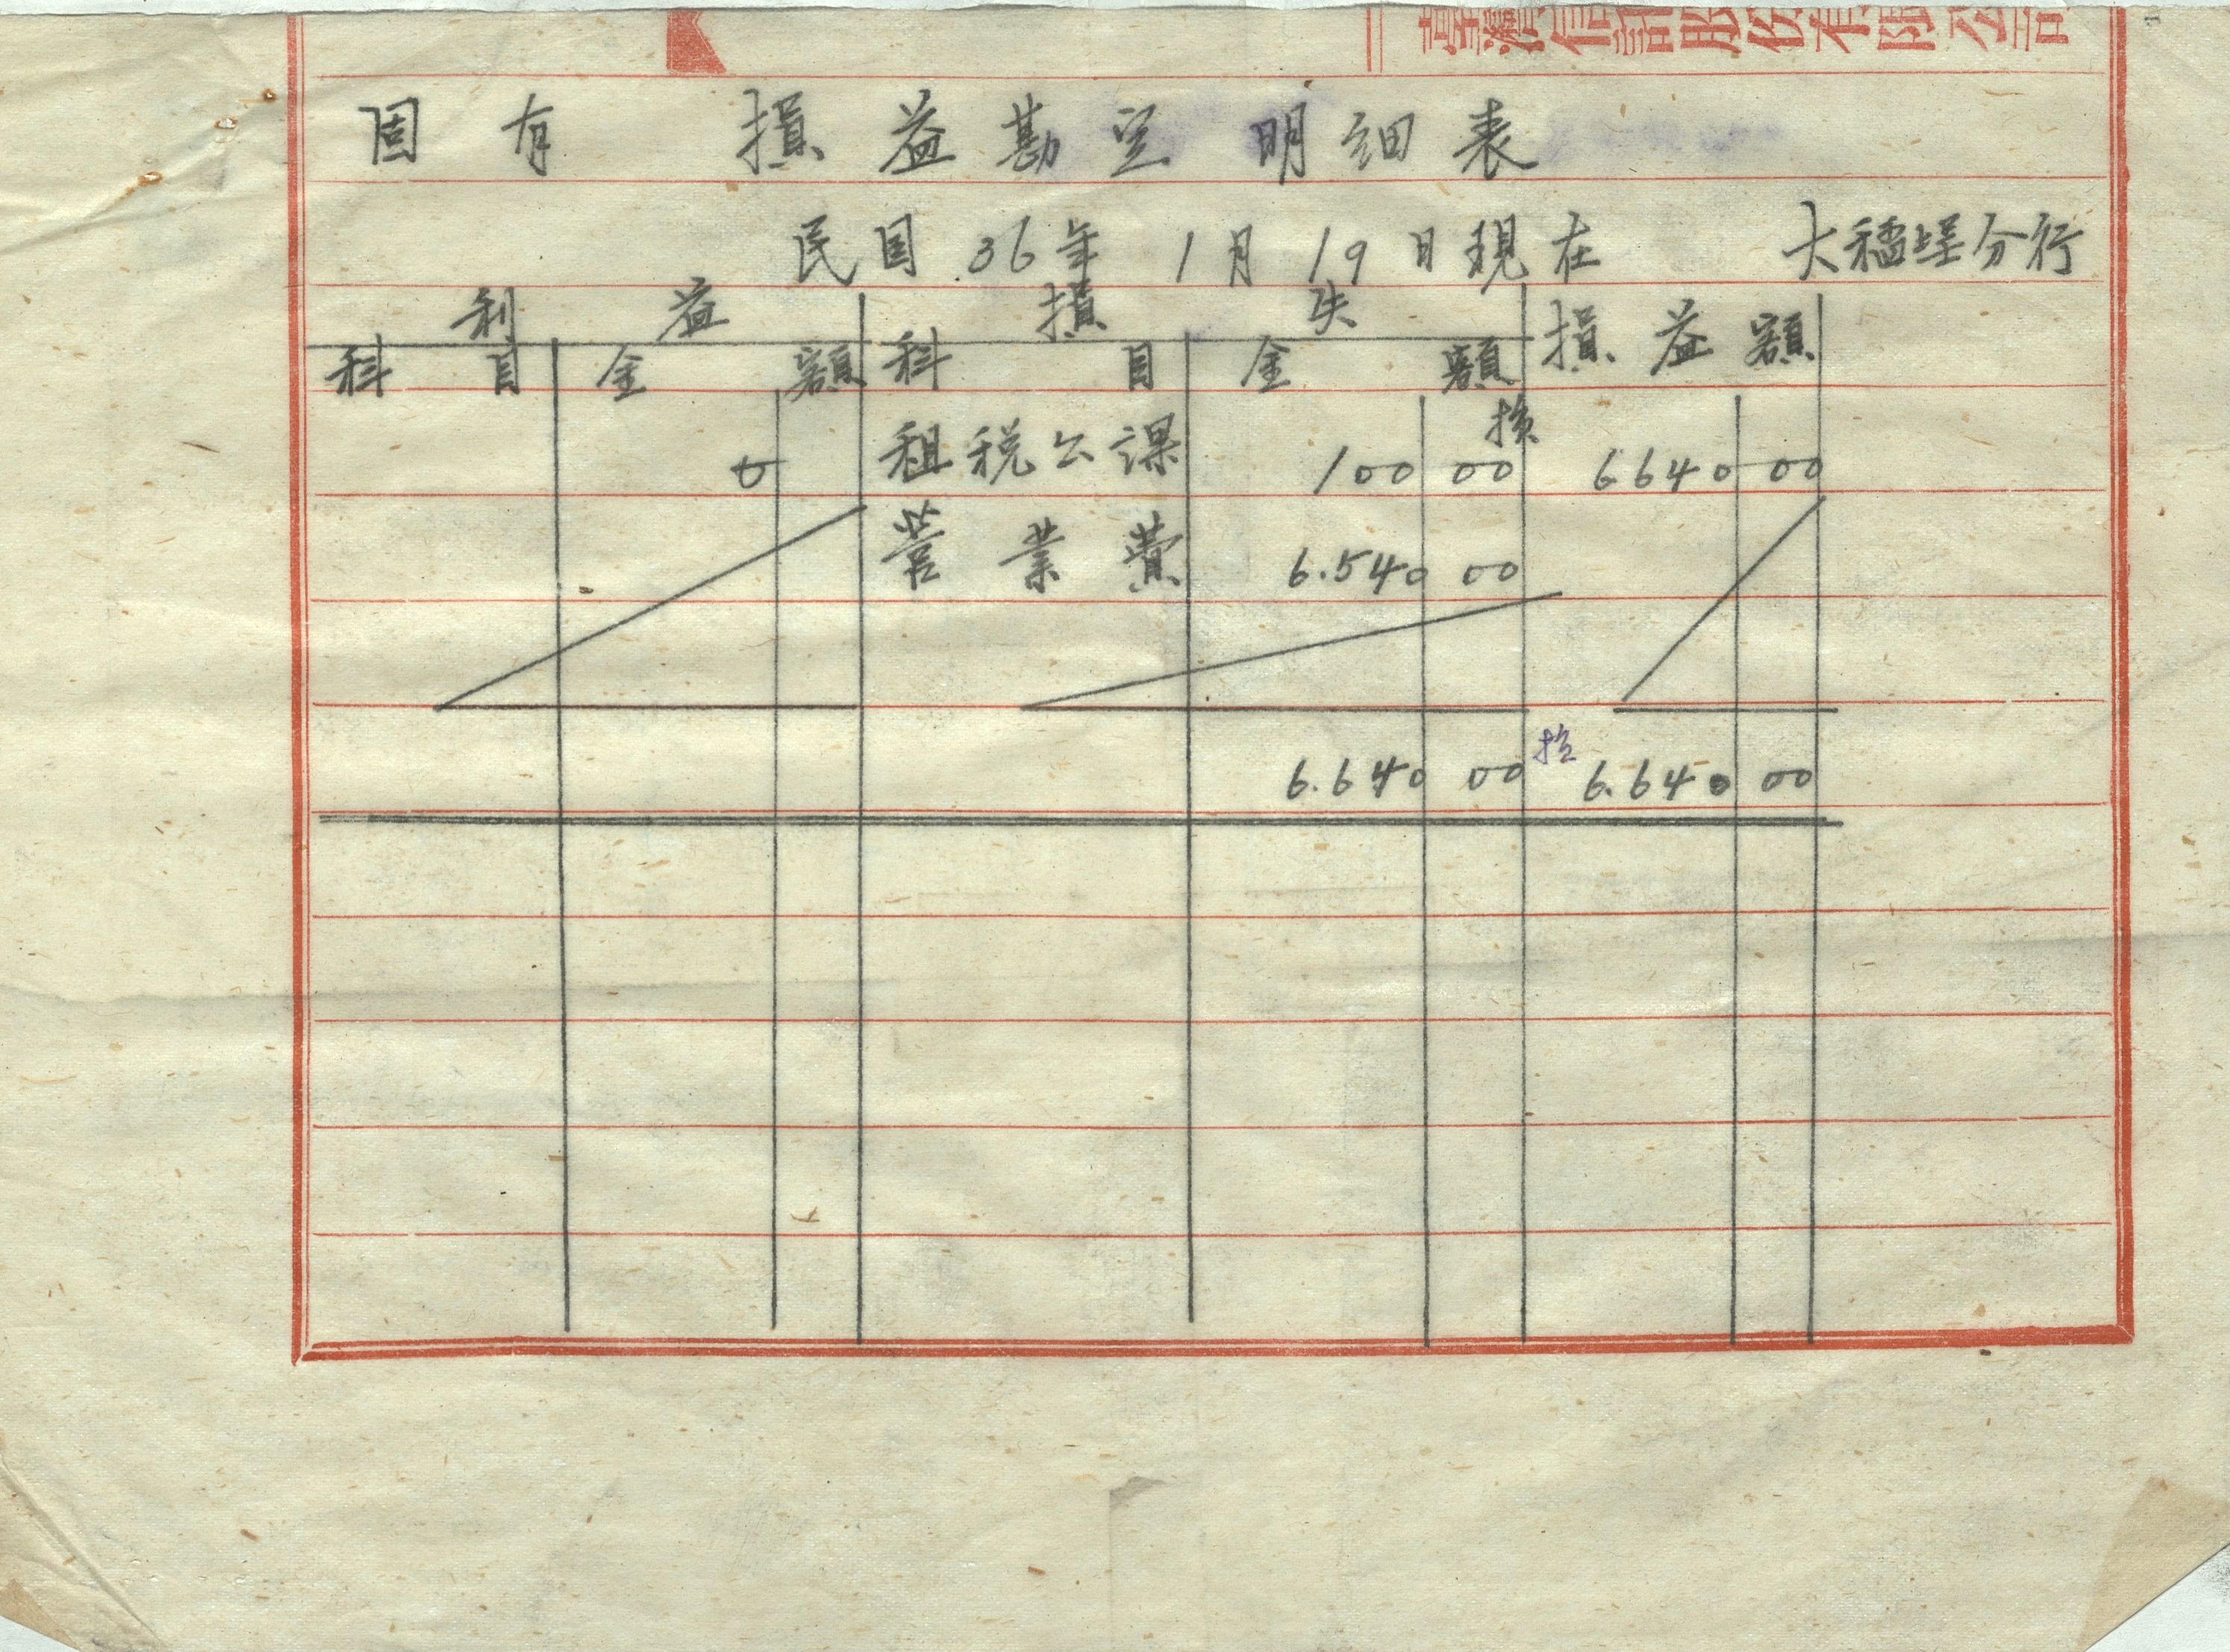 臺灣信託股份有限公司
固有 損益勘定明細表
民国36年1月19日現在 大稻埕分行
利益 損失 損益額
科目 金額 科目 金額
損
0 租税公課 100 00 6640 00
营業費 6.540 00
損
6.640 00 6.640 00